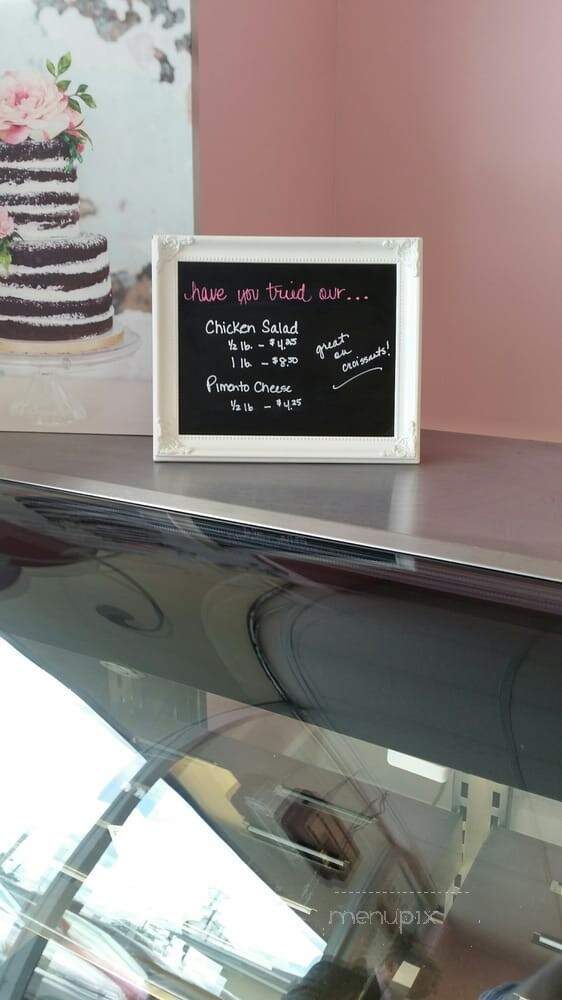 have you tried our...
Chicken Salad
½ lb. - $4.25
1 lb. - $8.50
great
on
croissants!
Pimento Cheese
½ lb - $4.25
menupix